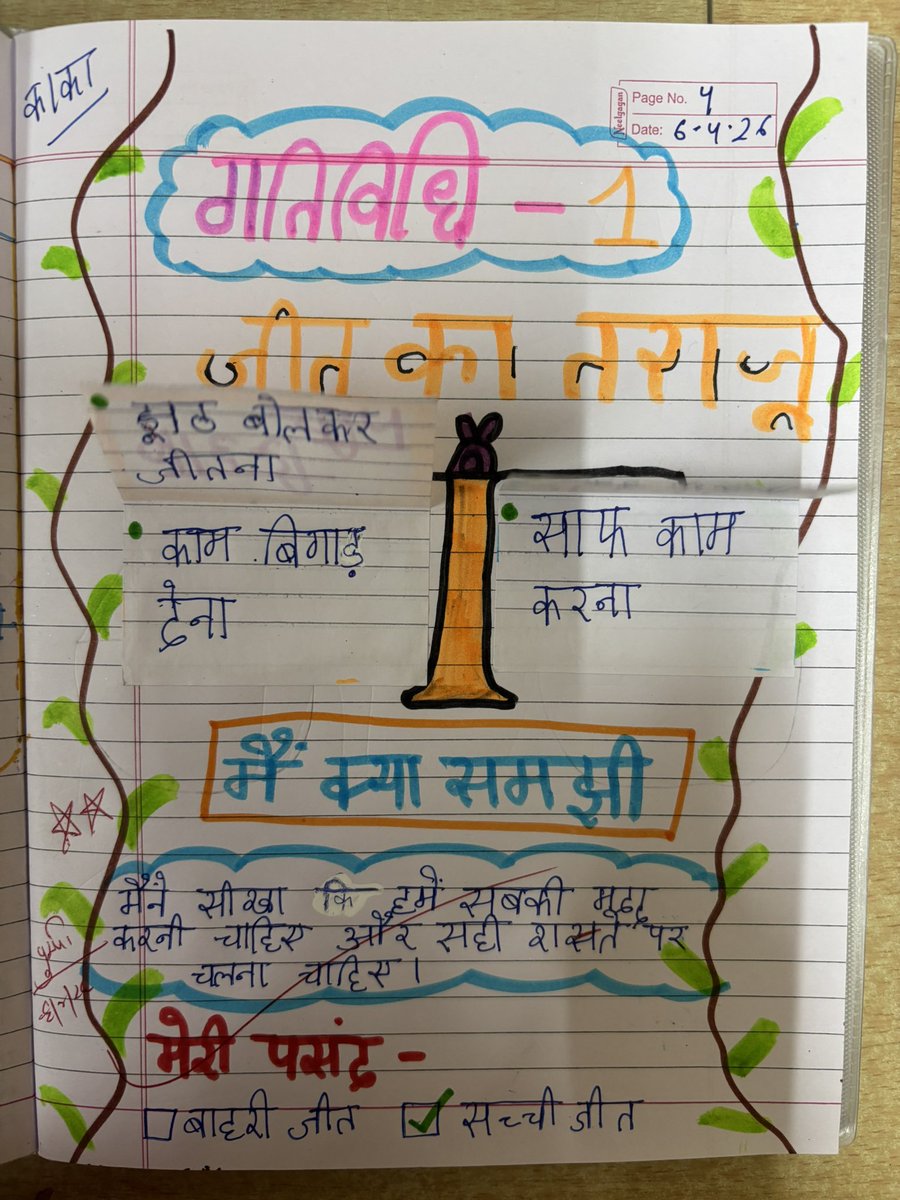 काका
Neelgagan
Page No. 4
Date: 6.4.26
गतिविधि - 1
जीत का तराजू
झूठ बोलकर
जीतना
काम बिगाड़
देना
साफ काम
करना
मैं क्या समझी
मैंने सीखा कि हमें सबकी मदद
करनी चाहिए और सही रास्ते पर
चलना चाहिए।
मेरी पसंद -
बाहरी जीत
सच्ची जीत